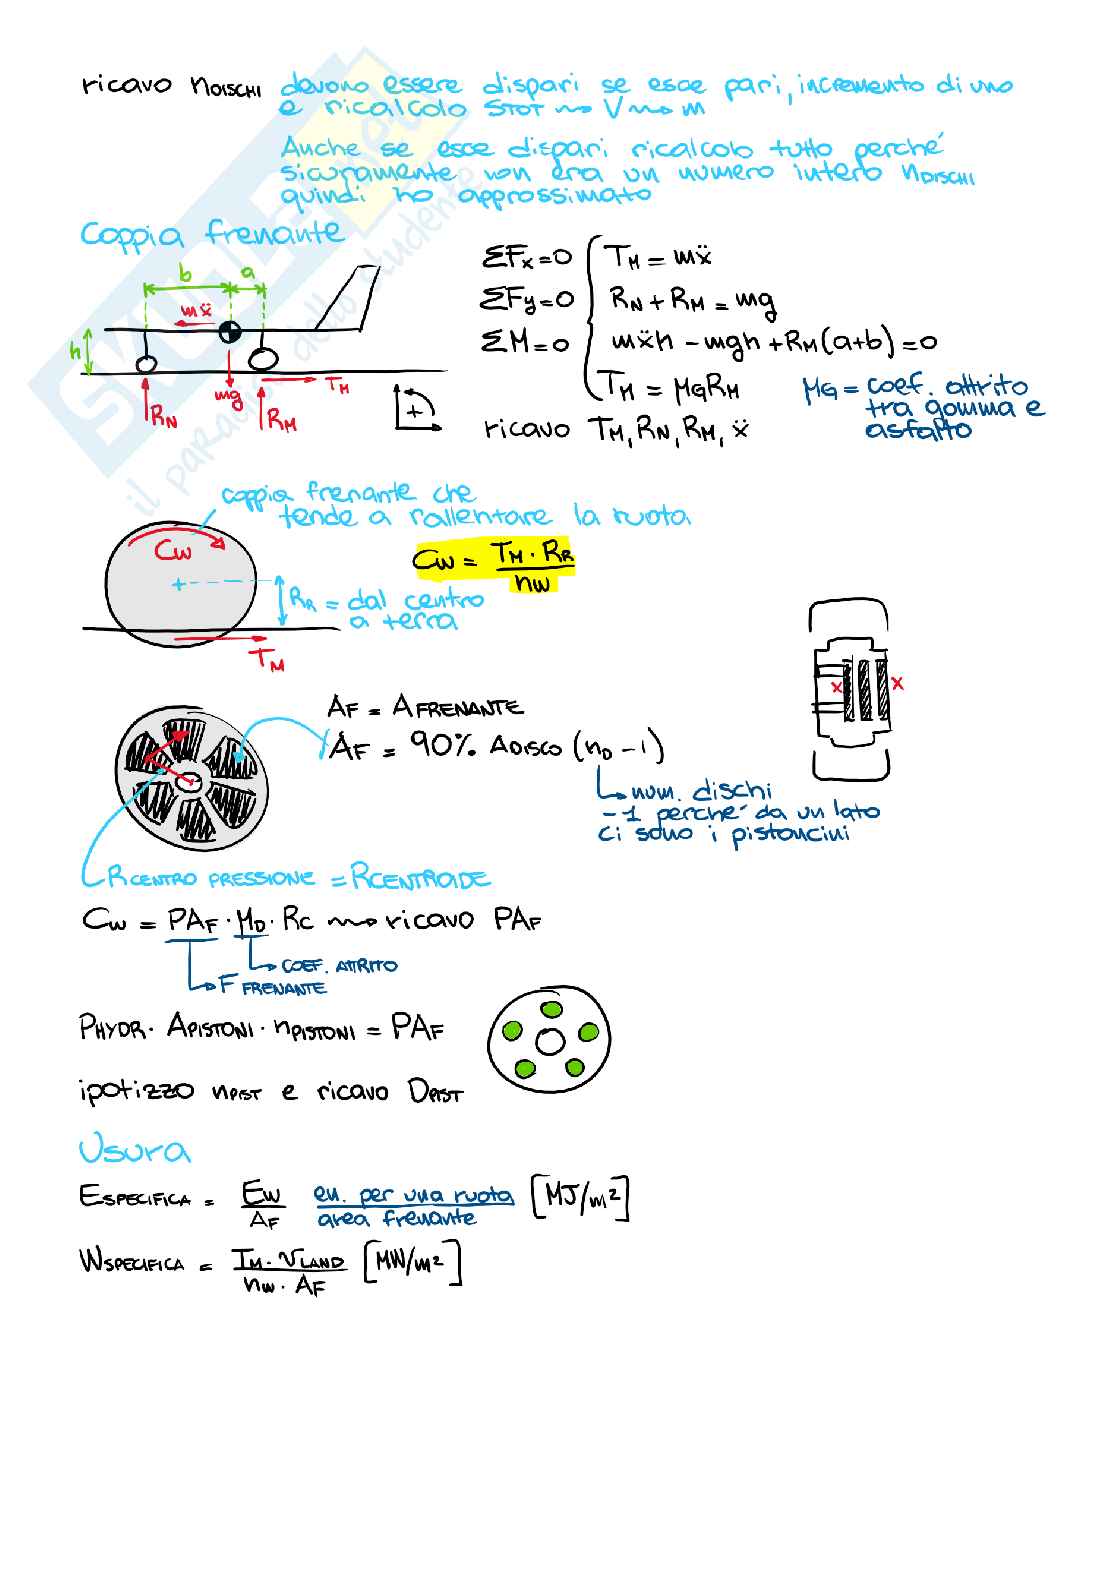 ricavo nDISCHI devono essere dispari se esce pari, incremento di uno
e ricalcolo STOT ⇝ V ⇝ m
Anche se esce dispari ricalcolo tutto perché
sicuramente non era un numero intero nDISCHI
quindi ho approssimato
Coppia frenante
b a
mẍ
h
mg
TM
RN
RM
+
ΣFx=0 TM = mẍ
ΣFy=0 RN + RM = mg
ΣM=0 mẍh - mgh + RM(a+b) = 0
TM = μGRM
μG = coef. attrito
tra gomma e
asfalto
ricavo TM, RN, RM, ẍ
coppia frenante che
tende a rallentare la ruota
CW
CW = TM · RR / nW
RR = dal centro
a terra
TM
x x
AF = AFRENANTE
AF = 90% ADISCO (nD - 1)
num. dischi
-1 perché da un lato
ci sono i pistoncini
RCENTRO PRESSIONE = RCENTROIDE
CW = PAF · μD · RC ⇝ ricavo PAF
COEF. ATTRITO
F FRENANTE
PHYDR · APISTONI · nPISTONI = PAF
ipotizzo nPIST e ricavo DPIST
Usura
ESPECIFICA = EW / AF en. per una ruota / area frenante [MJ/m²]
WSPECIFICA = TM · VLAND / nW · AF [MW/m²]
SKUOLA.net
il paradiso dello studente